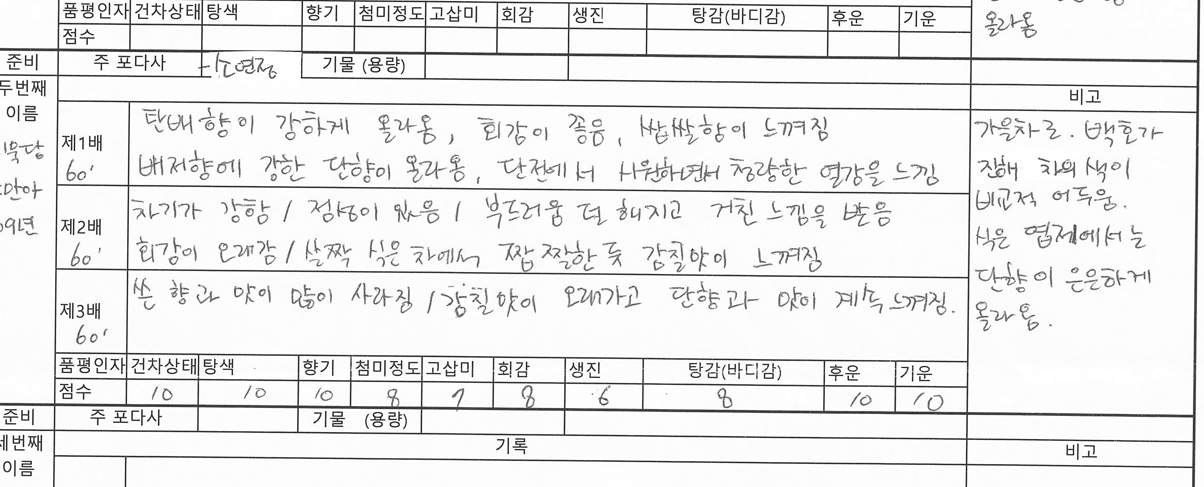 품평인자 건차상태 탕색 향기 첨미정도 고삽미 회감 생진 탕감(바디감) 후운 기운
점수
올라옴
준비 주 포다사 소연정 기물 (용량)
두번째 이름
비고
제1배 60'
탄배향이 강하게 올라옴, 회감이 좋음, 쌉쌀향이 느껴짐
배저향에 강한 단향이 올라옴, 단전에서 시원하면서 청량한 열감을 느낌
제2배 60'
차기가 강함 / 점성이 있음 / 부드러움 더 해지고 거친 느낌을 받음
회감이 오래감 / 살짝 식은 차에서 짭짤한 듯 감칠맛이 느껴짐
제3배 60'
쓴 향과 맛이 많이 사라짐 / 감칠맛이 오래가고 단향과 맛이 계속 느껴짐.
가을차로. 백호가
진해 차의 색이
비교적 어두움.
식은 엽저에서는
단향이 은은하게
올라옴.
품평인자 건차상태 탕색 향기 첨미정도 고삽미 회감 생진 탕감(바디감) 후운 기운
점수 10 10 10 8 7 8 6 8 10 10
준비 주 포다사 기물 (용량)
세번째 이름
기록
비고